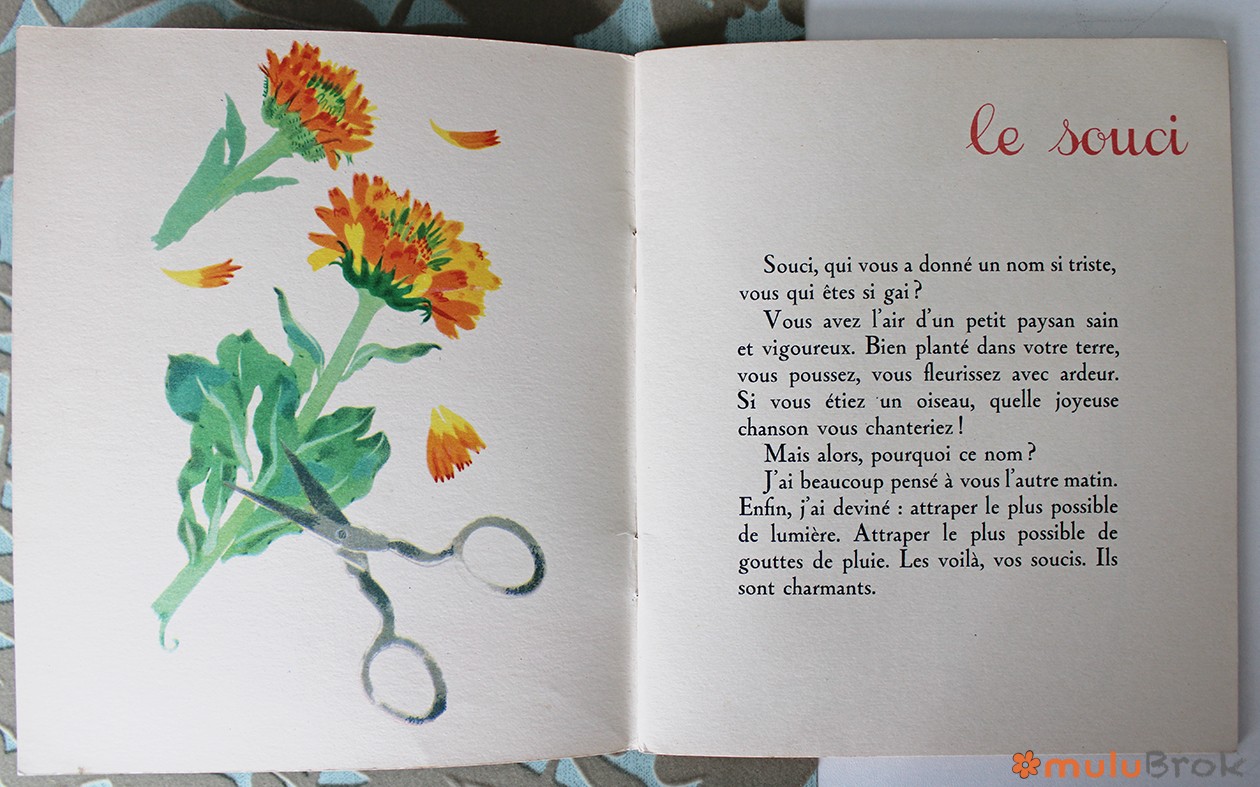 le souci
Souci, qui vous a donné un nom si triste,
vous qui êtes si gai ?
Vous avez l'air d'un petit paysan sain
et vigoureux. Bien planté dans votre terre,
vous poussez, vous fleurissez avec ardeur.
Si vous étiez un oiseau, quelle joyeuse
chanson vous chanteriez !
Mais alors, pourquoi ce nom ?
J'ai beaucoup pensé à vous l'autre matin.
Enfin, j'ai deviné : attraper le plus possible
de lumière. Attraper le plus possible de
gouttes de pluie. Les voilà, vos soucis. Ils
sont charmants.
muluBrok